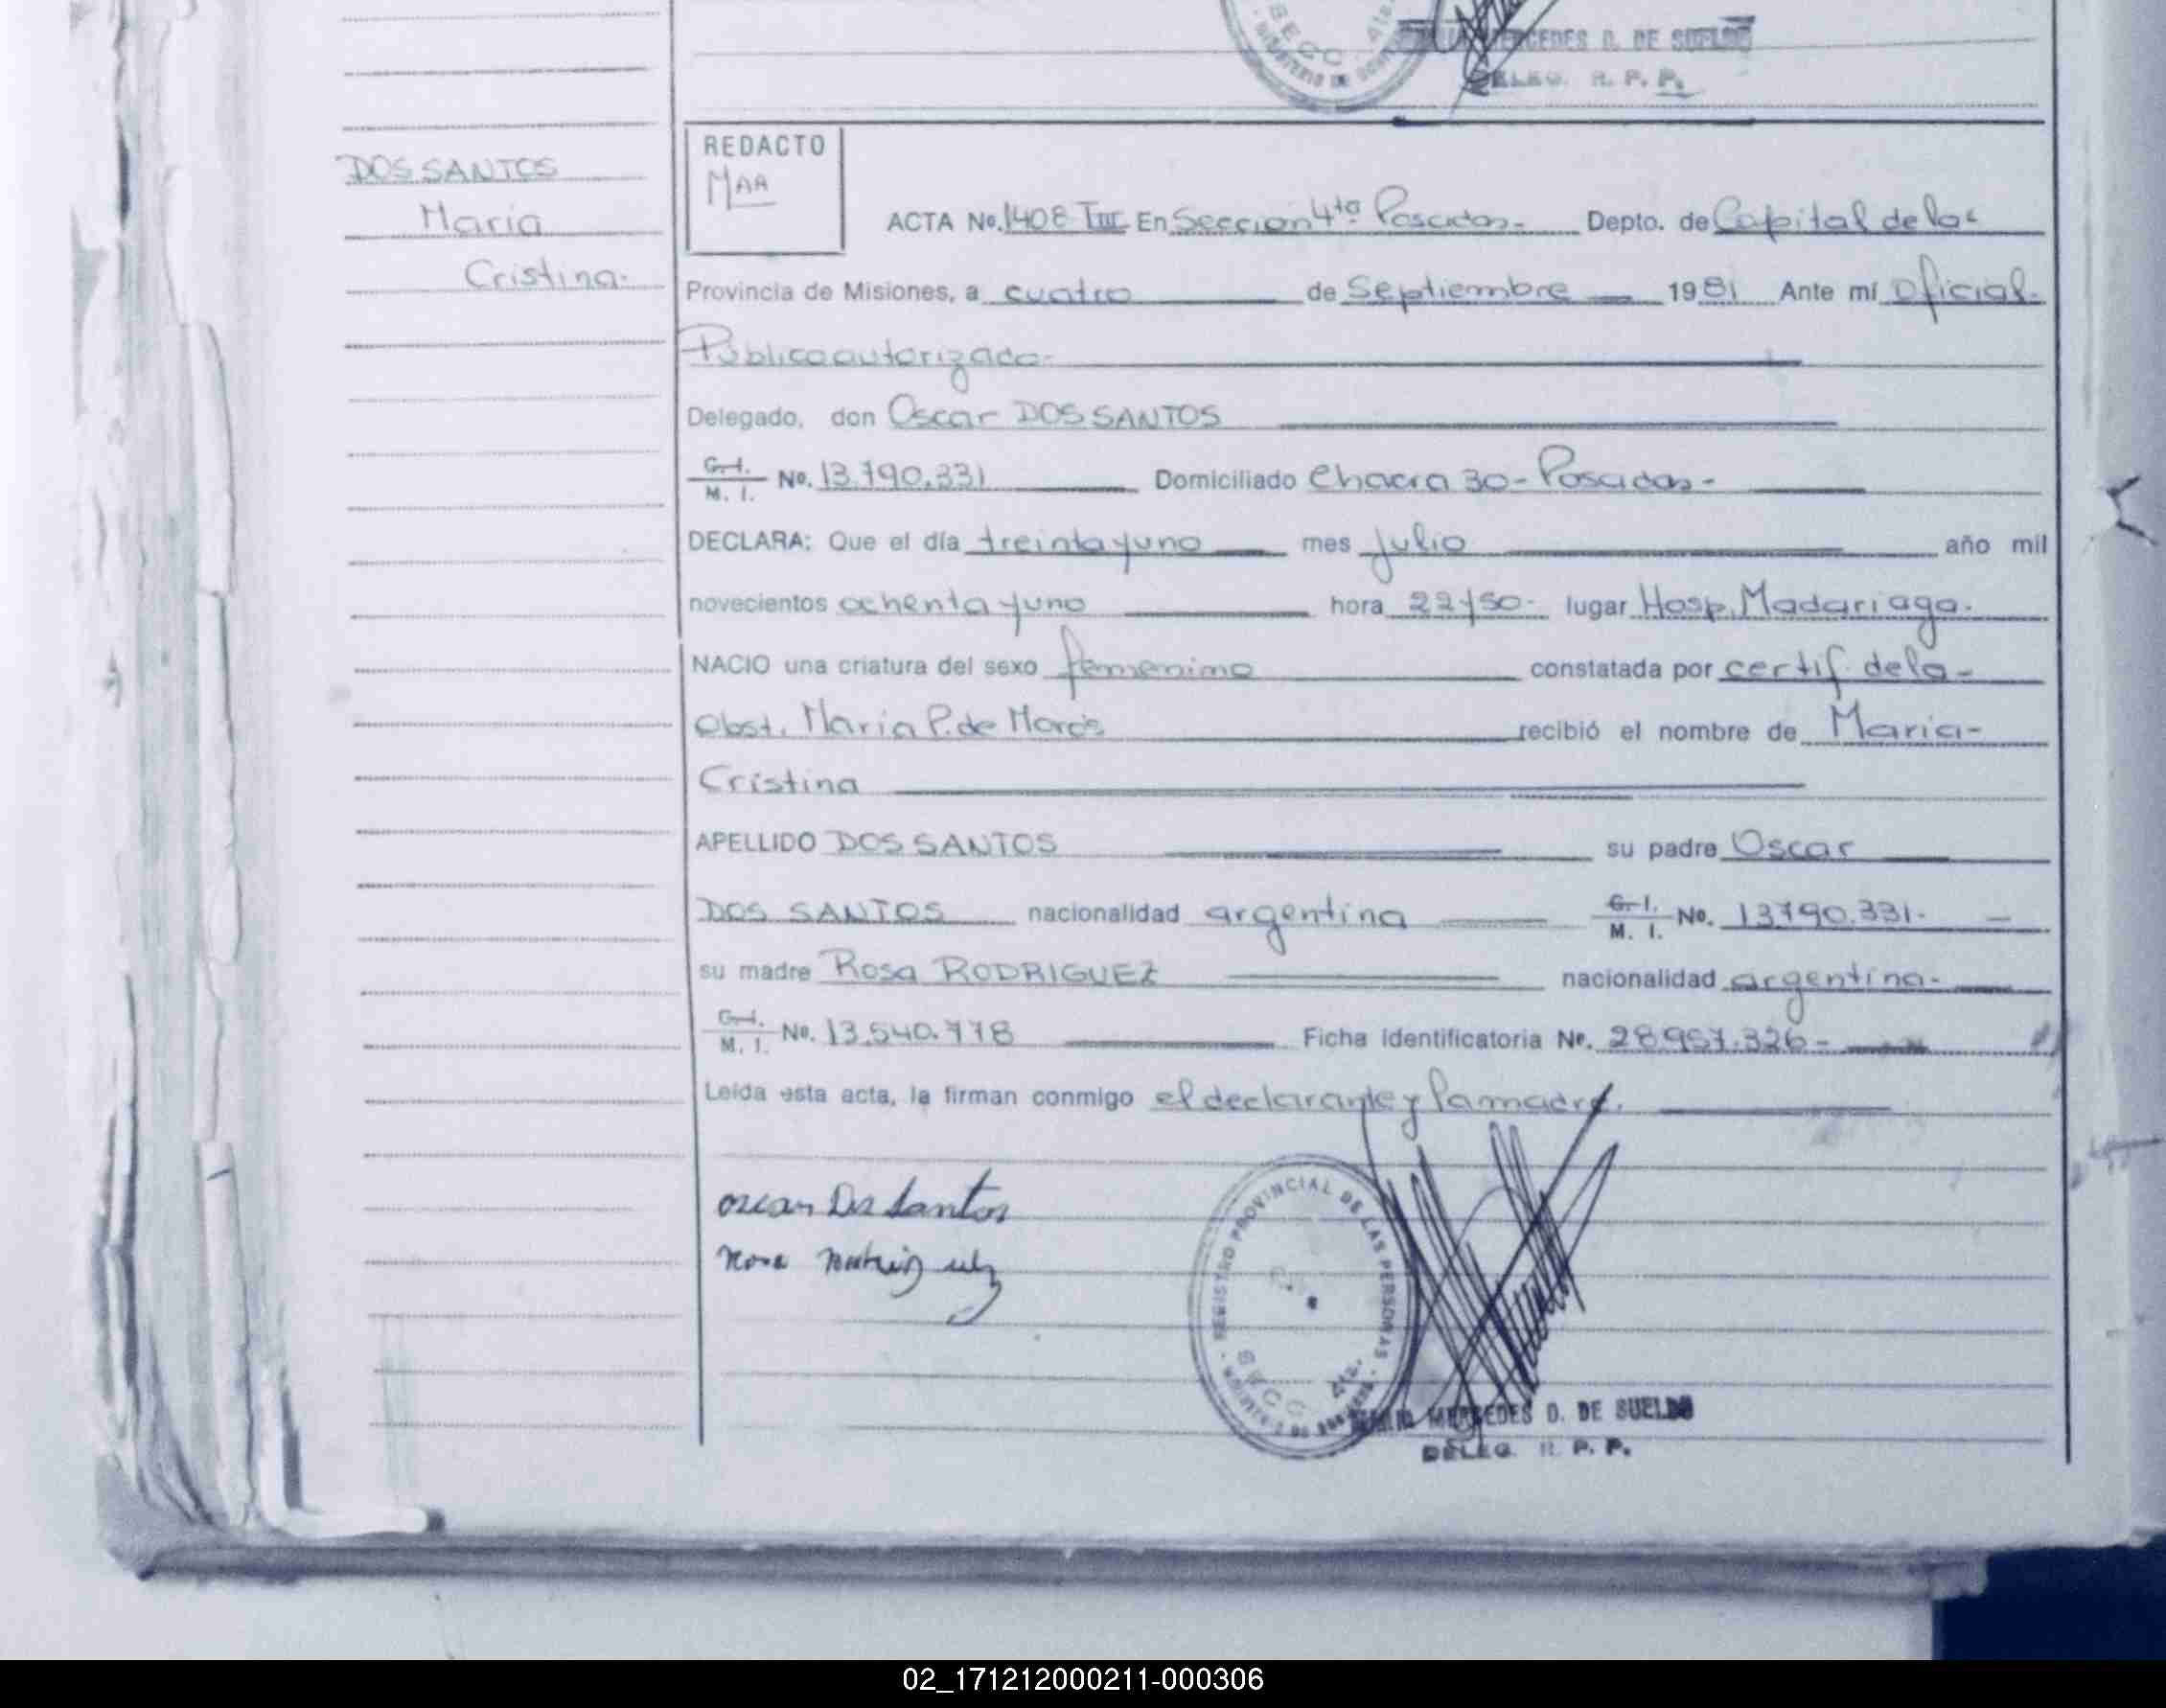 MERCEDES D. DE SUELDO
DELEG. R. P. P.
DOS SANTOS
Maria
Cristina.
REDACTO
MAA
ACTA No. 1408 TIII En Seccion 4ta Posadas- Depto. de Capital de la
Provincia de Misiones, a cuatro de Septiembre 1981 Ante mí Oficial
Público autorizado.
Delegado, don Oscar DOS SANTOS
C. I. M. I. No. 13.790.331 Domiciliado Chacra 30 - Posadas -
DECLARA: Que el día treinta y uno mes Julio año mil
novecientos ochenta y uno hora 22y50. lugar Hosp. Madariaga.
NACIO una criatura del sexo femenino constatada por certif. de la-
Obst. Maria P. de recibió el nombre de Maria-
Cristina
APELLIDO DOS SANTOS su padre Oscar
DOS SANTOS nacionalidad argentina C. I. M. I. No. 13790.331.
su madre Rosa RODRIGUEZ nacionalidad argentina.
C. I. M. I. No. 13.540.778 Ficha Identificatoria No. 28.957.326-
Leida esta acta, la firman conmigo el declarante y la madre.
oscar Dos Santos
REGISTRO PROVINCIAL DE LAS PERSONAS
SECC 4ta.
MERCEDES D. DE SUELDO
DELEG. R. P. P.
02_171212000211-000306